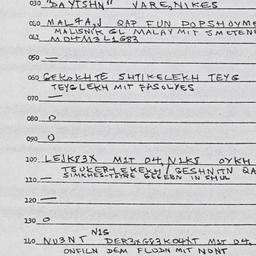 030 "DAYTSHN" VARENIKES
040 MAL4A,J QAP FUN POPSHOYME
MALISNIK GL MALAY MIT SMETENE
041 MD4M3L1G83
050 —
060 GEKOKHTE SHTIKELEKH TEYG
TEYGLEKH MIT FASOLYES
070 —
080 0
090 0
100 LEJK83X M1T D4,N1K8 OYKH
TSUKER-LEKEKH / GESHNITN
110 — SIMKHES-TOYRE GEGEBN IN SHUL
120 —
130 0
N1S
140 NU3NT M1T D4,
ONFILN DEM FLUDN MIT NONT